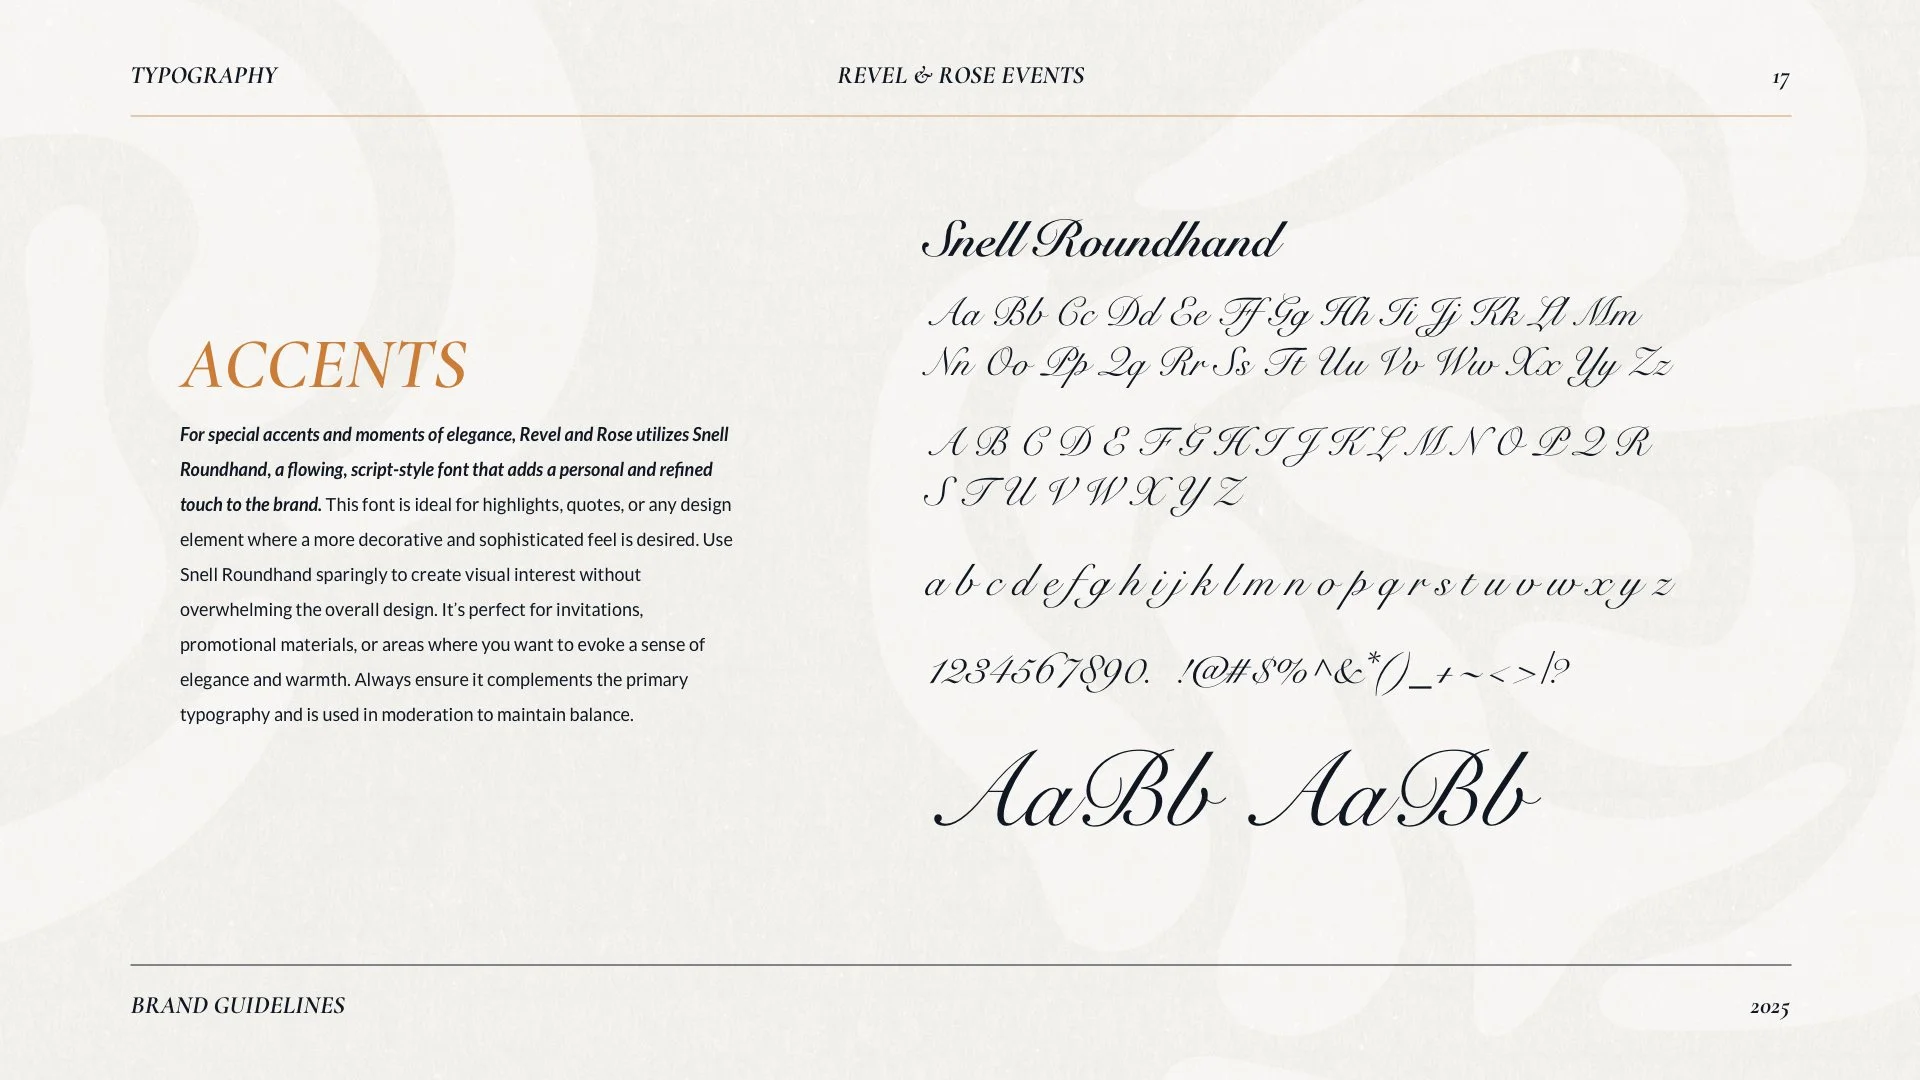 TYPOGRAPHY
REVEL & ROSE EVENTS
17
ACCENTS
For special accents and moments of elegance, Revel and Rose utilizes Snell
Roundhand, a flowing, script-style font that adds a personal and refined
touch to the brand. This font is ideal for highlights, quotes, or any design
element where a more decorative and sophisticated feel is desired. Use
Snell Roundhand sparingly to create visual interest without
overwhelming the overall design. It's perfect for invitations,
promotional materials, or areas where you want to evoke a sense of
elegance and warmth. Always ensure it complements the primary
typography and is used in moderation to maintain balance.
Snell Roundhand
Aa Bb Cc Dd Ee Ff Gg Hh Ii Jj Kk Ll Mm
Nn Oo Pp Qq Rr Ss Tt Uu Vv Ww Xx Yy Zz
A B C D E F G H I J K L M N O P Q R
S T U V W X Y Z
a b c d e f g h i j k l m n o p q r s t u v w x y z
1234567890. !@#$%^&*()_+~<>|?
AaBb AaBb
BRAND GUIDELINES
2025